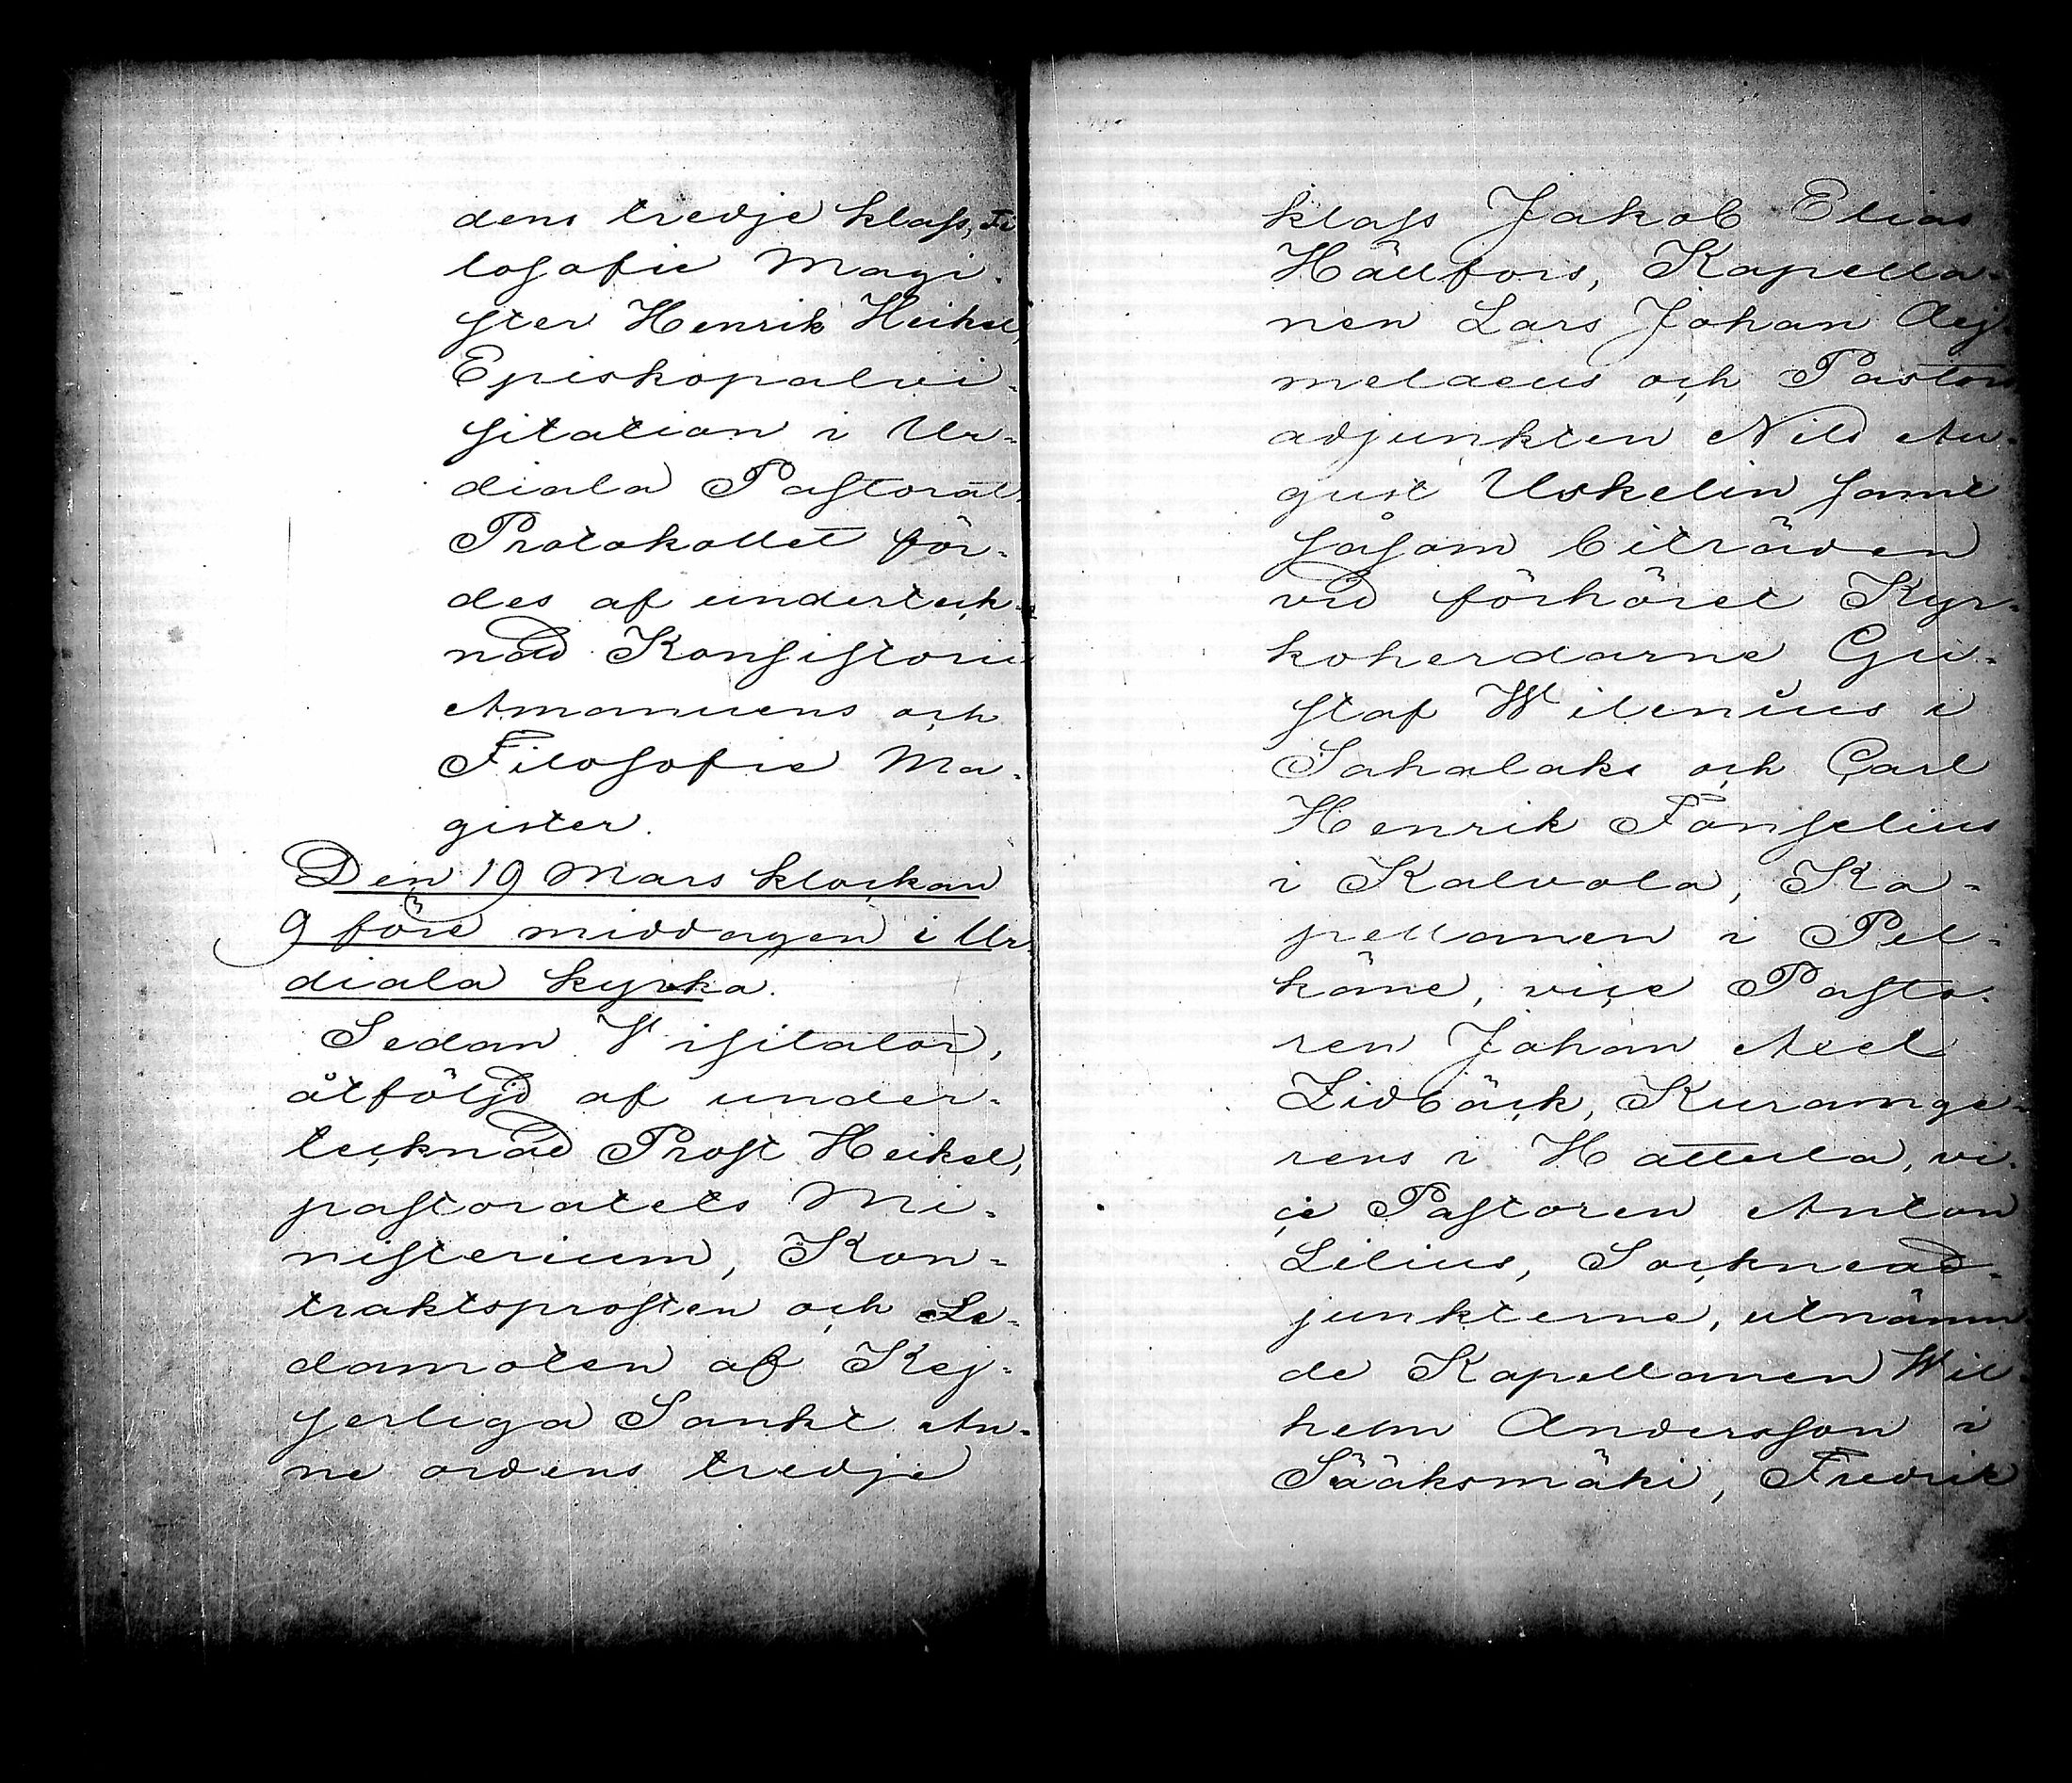 dens tredje klass, Fi
losofie Magi-
ster Henrik Heikel,
Episkopalvi-
sitation i Ur-
diala Pastorat.
Protokollet för-
des af underteck-
nad Konsistorii
Amanuens och
Filosofie Ma-
gister.
Den 19 Mars klockan
9 före middagen i Ur-
diala kyrka.
Sedan Visitator,
åtföljd af under-
tecknad Prost Heikel,
pastoratets Mi-
nisterium, Kon-
traktsprosten och Le-
damoten af Kej-
serliga Sankt An-
ne ordens tredje
klass Jakob Elias
Hällfors, Kapella-
nen Lars Johan Aej-
melaeus och Pastors
adjunkten Nils Au-
gust Uskelin samt
såsom biträden
vid förhöret Kyr-
koherdarne Gu-
staf Wilenius i
Sahalaks och Carl
Henrik Fonselius
i Kalvola, Ka-
pellanen i Pel-
käne, vice Pasto-
ren Johan Axel
Lidbäck, Kuramge-
rens i Hattula, vi-
ce Pastoren Anton
Lilius, Socknead-
junkterne, utnämn
de Kapellanen Wil-
helm Andersson i
Sääksmäki, Fredrik